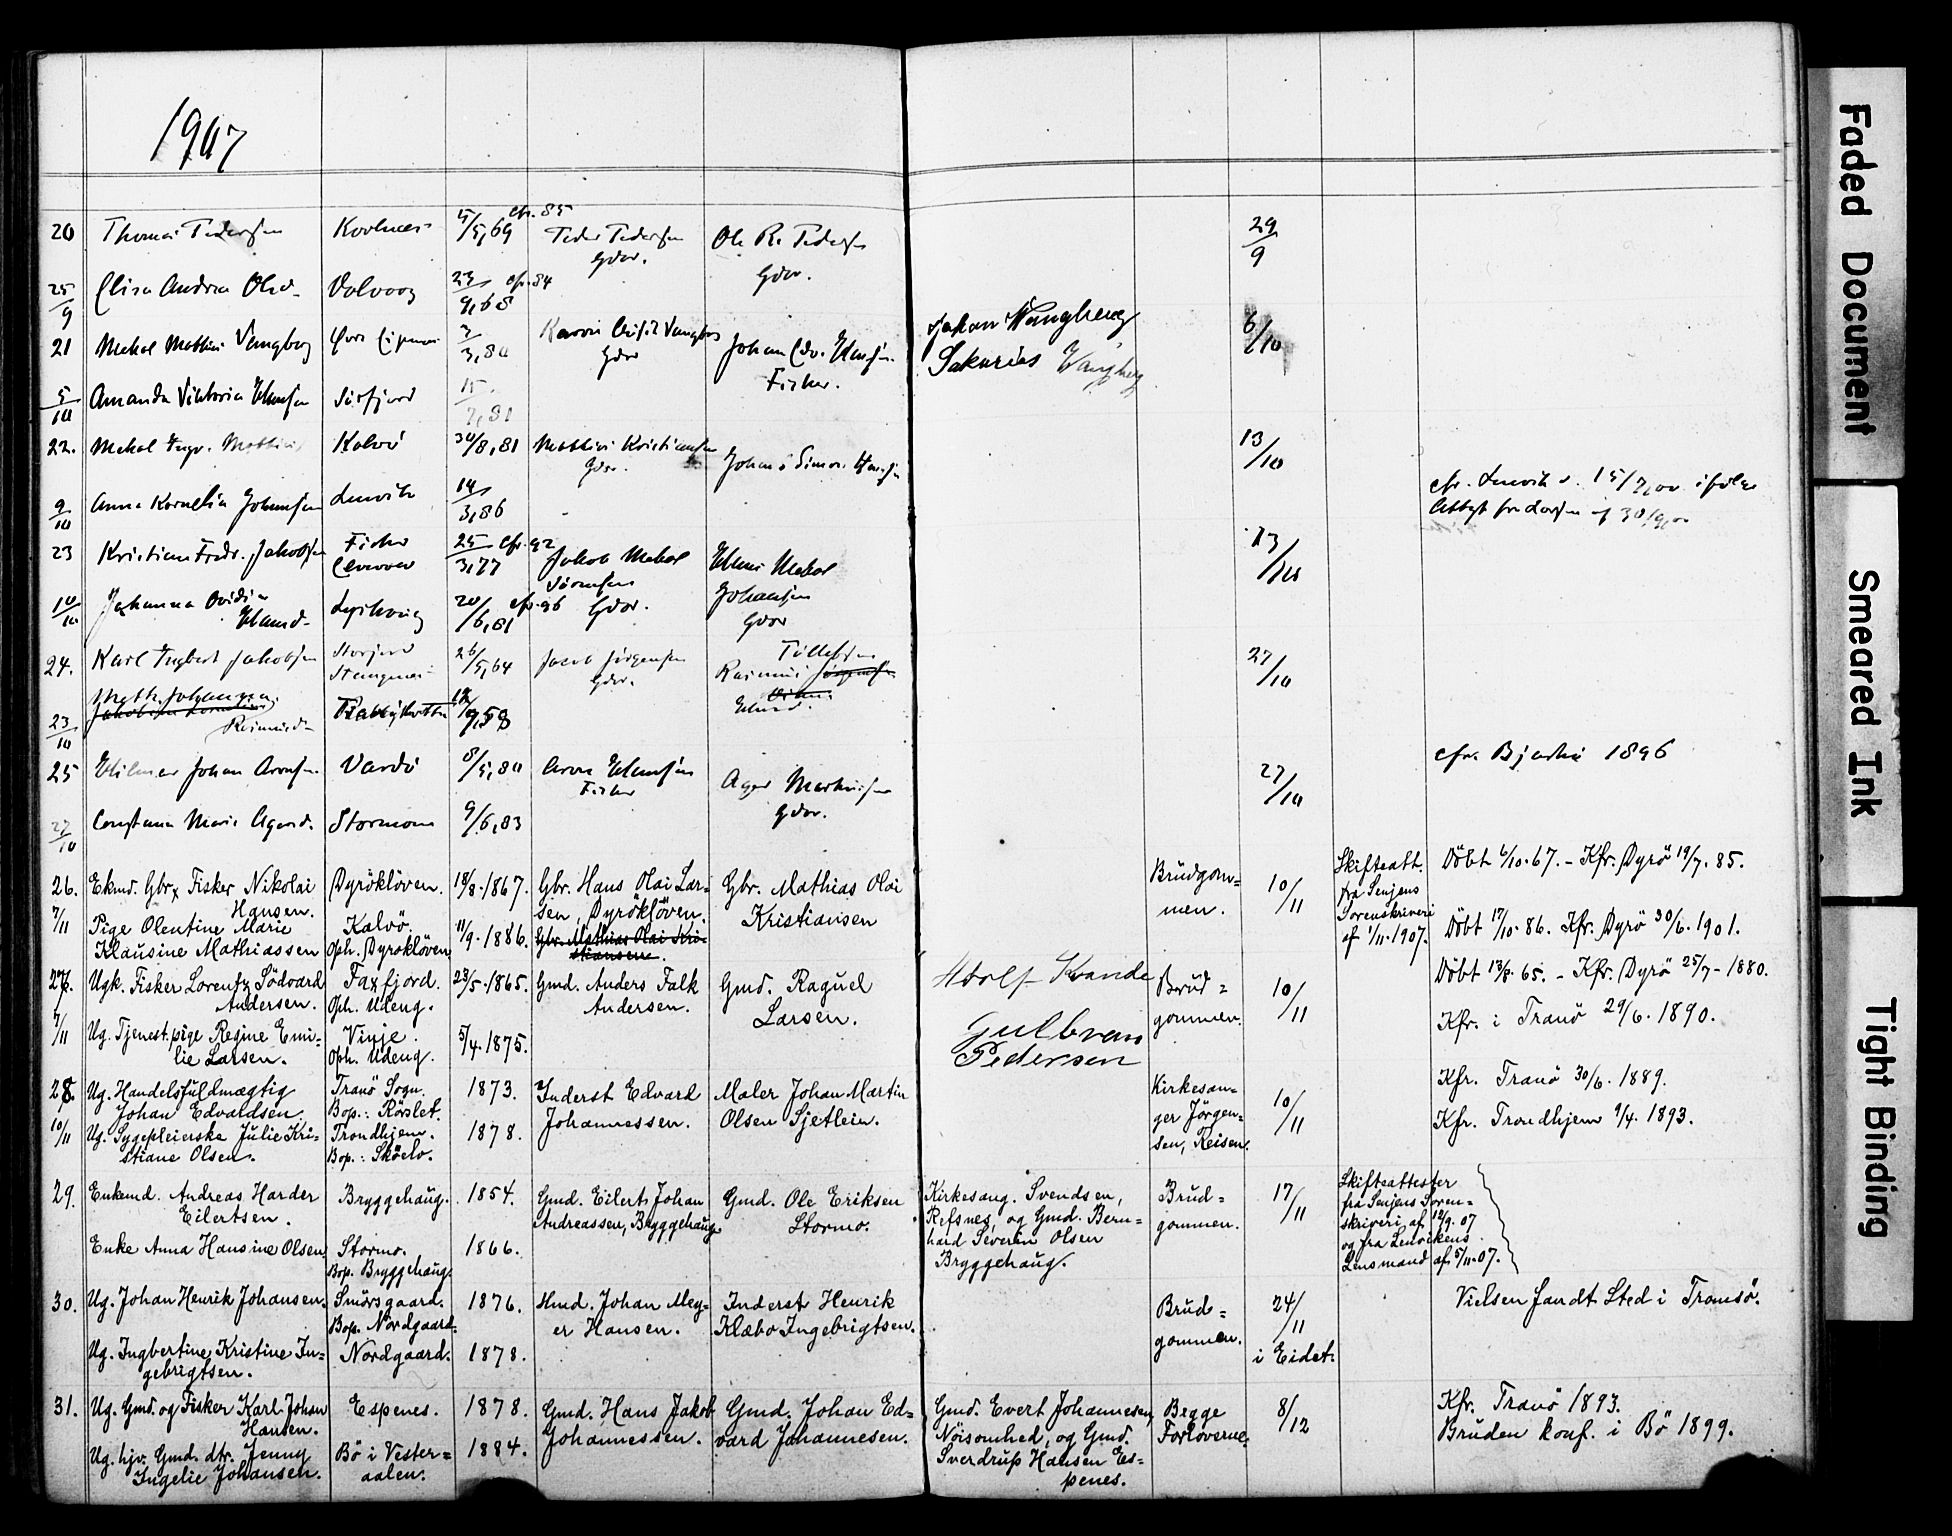 1907
20 Thomas Pedersen
5/5,69 cfr. 85
Peder Pedersen
Gdbr.
Ole R. Pedersen
Gdbr.
29/9
25/9 Elisa Andrea
23/9,68 cfr. 84
21 Mekal Mathias Vangberg
Gdbr
Johan Edv. Hansen
Fisker.
Johan Wangberg
Sakarias Vangberg
6/10
5/10 Amanda Viktoria Hansen
Sörfjord
22. Mekal Ingv. Mathias
Kalvö
30/8,81
Mathias Kristiansen
Gdbr.
Johan Simon Hansen
13/10
9/10 Anna Kornelia Johansen
Lenvik
14/3,86
cfr. Lenvik
23 Kristian Fredr. Jakobsen
Fisker
25/3,77 cfr. 92
Jakob Mekal
Sörensen
Gdbr.
Hans Mekal
Johansen
Gdbr
13/10
10/10 Johanna Ovidia
Hansd.
Lysbotn
20/6,81 cfr. 96
24. Karl Ingbert Jakobsen
Storjord
26/5,64
Jacob Jörgensen
Gdbr.
Rasmus
Tollefsen
27/10
23/10
Rasmusd.
12/9,58
25 Hilmar Johan Aronsen
Vardö
8/5,80
Aron Hansen
Fisker
Ager Markusen
Gdbr.
27/10
cfr. Bjarkö 1896
27/10 Constance Marie Agersd.
Stormoen
9/6,83
26. Ekmd. Gbr, Fisker Nikolai
Hansen.
Dyröklöven.
18/8.1867.
Gbr. Hans Olai Lar-
sen, Dyröklöven.
Gbr. Mathias Olai
Kristiansen
Brudgom-
men.
10/11
Skifteatt.
fra Senjens
Sorenskriveri
af 1/11.1907.
Döbt 6/10.67. - Kfr. Dyrö 19/7.85.
7/11 Pige Olentine Marie
Klausine Mathiassen
Kalvö.
Oph. Dyröklöven
11/9.1886.
Gbr. Mathias Olai Kri-
stiansen.
Döbt 17/10.86. Kfr. Dyrö 30/6.1901.
27. Ugk. Fisker Lorentz Södvard
Andersen.
Faxfjord.
Oph. Udeng.
23/5.1865.
Gmd. Anders Falk
Andersen.
Gmd. Raguel
Larsen.
Adolf Kvande
Gulbran
Pedersen
Brud-
gommen.
10/11
Döbt 13/8.65. - Kfr. Dyrö 25/7-1880.
7/11 Ug. Tjenest.pige Regine Emi-
lie Larsen.
Vinje.
Oph. Udeng.
5/4.1875.
Kfr. i Tranö 29/6.1890.
28. Ug. Handelsfuldmægtig
Johan Edvardsen
Tranö Sogn.
Bop.: Rörslet.
1873.
Inderst Edvard
Johannessen.
Maler Johan Martin
Olsen Sjetlein.
Kirkesan-
ger Jörgen-
sen, Reisen.
10/11
Kfr. Tranö 30/6.1889.
10/11 Ug. Sygepleierske Julie Kri-
stiane Olsen.
Trondhjem.
Bop.: Sköelv.
1878.
Kfr. Trondhjem 9/4.1893.
29. Enkemd. Andreas Harder
Eilertsen.
Bryggehaug.
1854.
Gmd. Eilert Johan
Andreassen, Bryggehaug.
Gmd. Ole Eriksen
Stormo.
Kirkesang. Svendsen,
Refsnes, og Gmd. Bern-
hard Severin Olsen
Bryggehaug.
Brud-
gommen.
17/11
Skifteattester
fra Senjens Soren-
skriveri af 12/9.07
og fra Lenvikens
Lensmand af 5/11-07.
Enke Anna Hansine Olsen
Stormo.
Bop. Bryggehaug.
1866.
30. Ug. Johan Henrik Johansen.
Smörsgaard.
Bop. Nordgaard.
1876.
Hmd. Johan Mey-
er Hansen.
Inderst Henrik
Klæbo Ingebrigtsen.
Brud-
gommen.
24/11
i Eidet.
Vielsen fandt Sted i Tromsö.
Ug. Ingbertine Kristine In-
gebrigtsen.
Nordgaard.
1878.
31. Ug. Gmd. og Fisker Karl Johan
Hansen.
Espenes.
1878.
Gmd. Hans Jakob
Johannessen.
Gmd. Johan Ed-
vard Johannesen.
Gmd. Evert Johannesen,
Nöisomhed, og Gmd.
Sverdrup Hansen Es-
penes.
Begge
Forloverne.
8/12
Kfr. Tranö 1893.
Bruden konf. i Bö 1899.
Ug. hjv. Gmd. dtr. Jenny
Ingelie Johansen.
Bö i Vester-
aalen.
1884.
Faded Document
Smeared Ink
Tight Binding